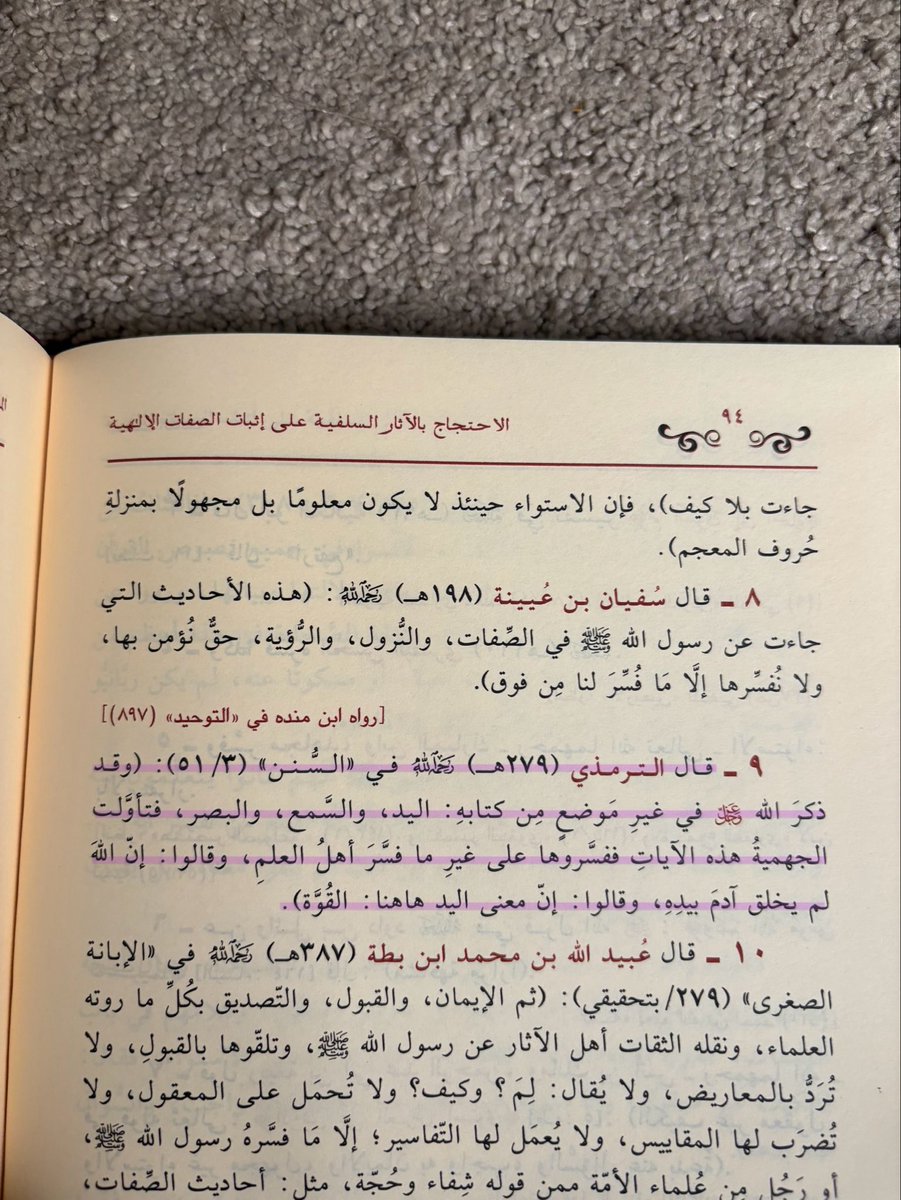 الاحتجاج بالآثار السلفية على إثبات الصفات الإلهية
٩٤
جاءت بلا كيف)، فإن الاستواء حينئذ لا يكون معلومًا بل مجهولًا بمنزلةِ
حُروف المعجم).
٨ ـ قال سُفيان بن عُيينة (١٩٨هـ) رَحِمَهُ ٱللَّهُ: (هذه الأحاديث التي
جاءت عن رسول الله ﷺ في الصِّفات، والنُّزول، والرُّؤية، حقٌّ نُؤمن بها،
ولا نُفسِّرها إلَّا مَا فُسِّرَ لنا مِن فوق).
[رواه ابن منده في «التوحيد» (٨٩٧)]
٩ ـ قال الترمذي (٢٧٩هـ) رَحِمَهُ ٱللَّهُ في «السُّنن» (٥١/٣): (وقد
ذكرَ الله عَزَّوَجَلَّ في غيرِ مَوضعٍ مِن كتابهِ: اليد، والسَّمع، والبصر، فتأوَّلت
الجهميةُ هذه الآياتِ ففسَّروها على غيرِ ما فسَّرَ أهلُ العلمِ، وقالوا: إنّ اللهَ
لم يخلق آدمَ بيدِهِ، وقالوا: إنّ معنى اليد هاهنا: القُوَّة).
١٠ ـ قال عُبيد الله بن محمد ابن بطة (٣٨٧هـ) رَحِمَهُ ٱللَّهُ في «الإبانة
الصغرى» (٢٧٩/بتحقيقي): (ثم الإيمان، والقبول، والتّصديق بكُلِّ ما روته
العلماء، ونقله الثقات أهل الآثار عن رسول الله ﷺ، وتلقّوها بالقبولِ، ولا
تُرَدُّ بالمعاريض، ولا يُقال: لِمَ؟ وكيف؟ ولا تُحمَل على المعقول، ولا
تُضرَب لها المقاييس، ولا يُعمَل لها التّفاسير؛ إلَّا مَا فسَّرهُ رسول الله ﷺ،
أو رَجُل مِن عُلماء الأمّة ممن قوله شِفاء وحُجّة، مثل: أحاديث الصِّفات،